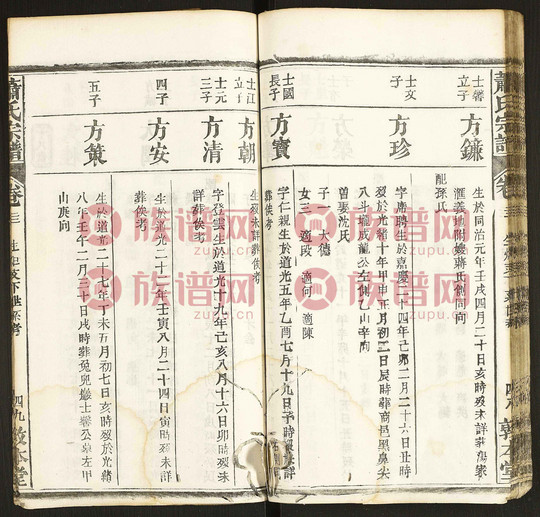 蕭氏宗譜
卷三
士馨
立子
方鐮
生於同治元年壬戌四月二十日亥時歿未詳葬
滙義地附嫂蔣氏側同向
配孫氏
士文
子
方珍
字席聘生於嘉慶二十四年己卯二月二十六日丑時
歿於光緒十年甲申正月初二日辰時葬商邑黑鼻尖
八斗壠咸龍公左側乙山辛向
曾娶沈氏
子一 大德
女三 適段 適何 適陳
士國
長子
方寶
字仁親生於道光五年乙酉七月十九日子時歿葬未詳
士江
立子
方朝
生歿未詳葬俟考
士元
三子
方清
字登雲生於道光十九年己亥八月十六日卯時歿未
詳葬俟考
四子
方安
生於道光二十二年壬寅八月二十四日寅時歿未詳
葬俟考
五子
方策
生於道光二十七年丁未五月初七日亥時歿於光緒
八年壬午二月三十日戌時葬兔兒巖士馨公墓左甲
山庚向
蕭氏宗譜
卷三
四九
敦本堂
族谱网
zupu.cn